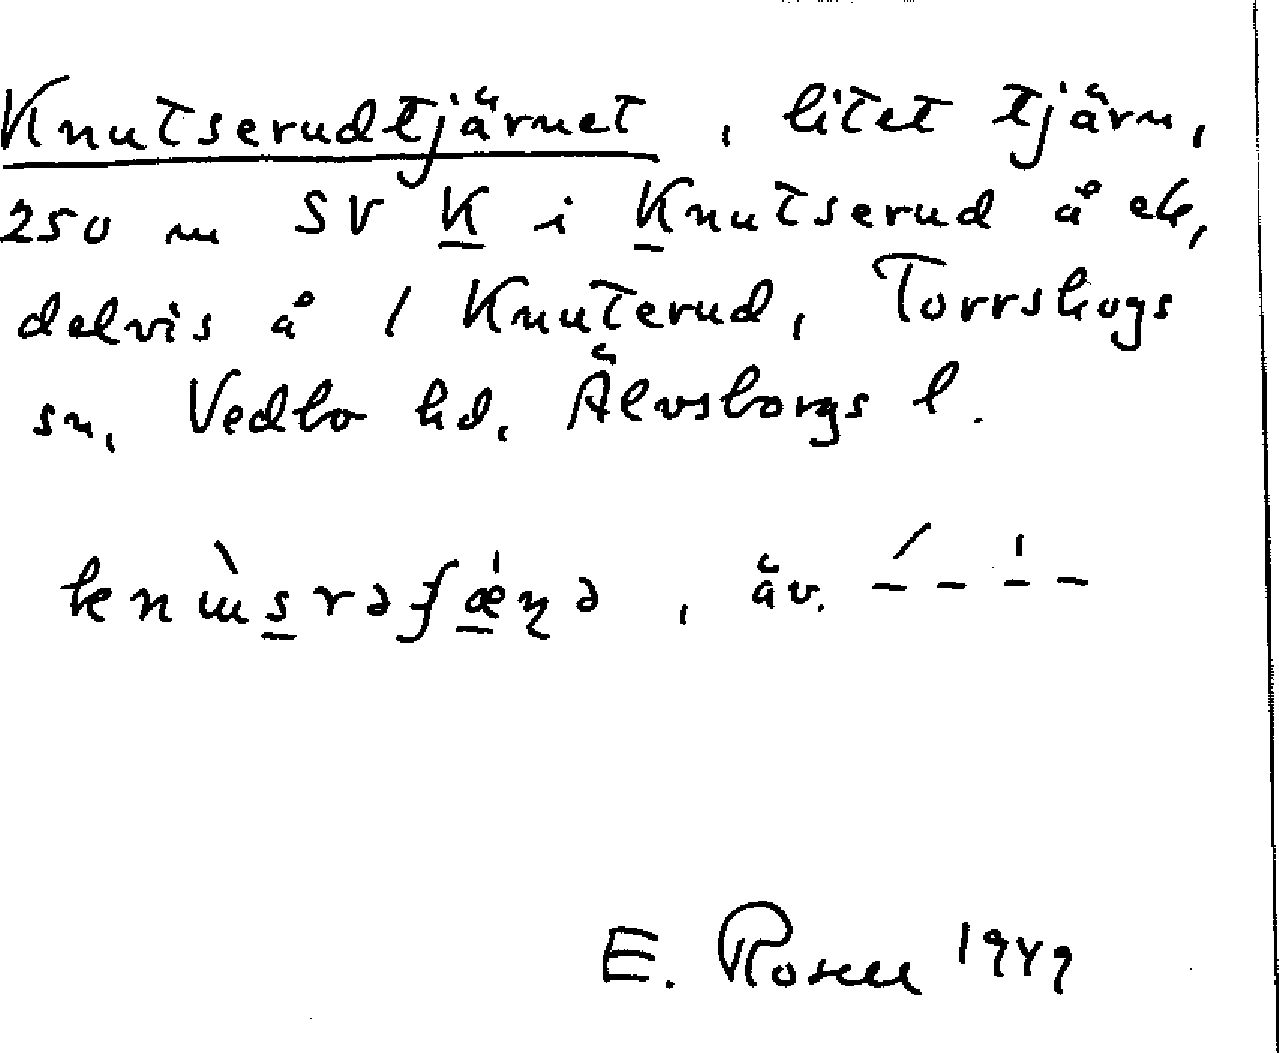 Knutserudtjärnet, litet tjärn,
250 m SV K i Knutserud å ek,
delvis å 1 Knuterud, Torrskogs
sn, Vedbo hd, Älvsborgs l.
äv.
E. Rosell 1949